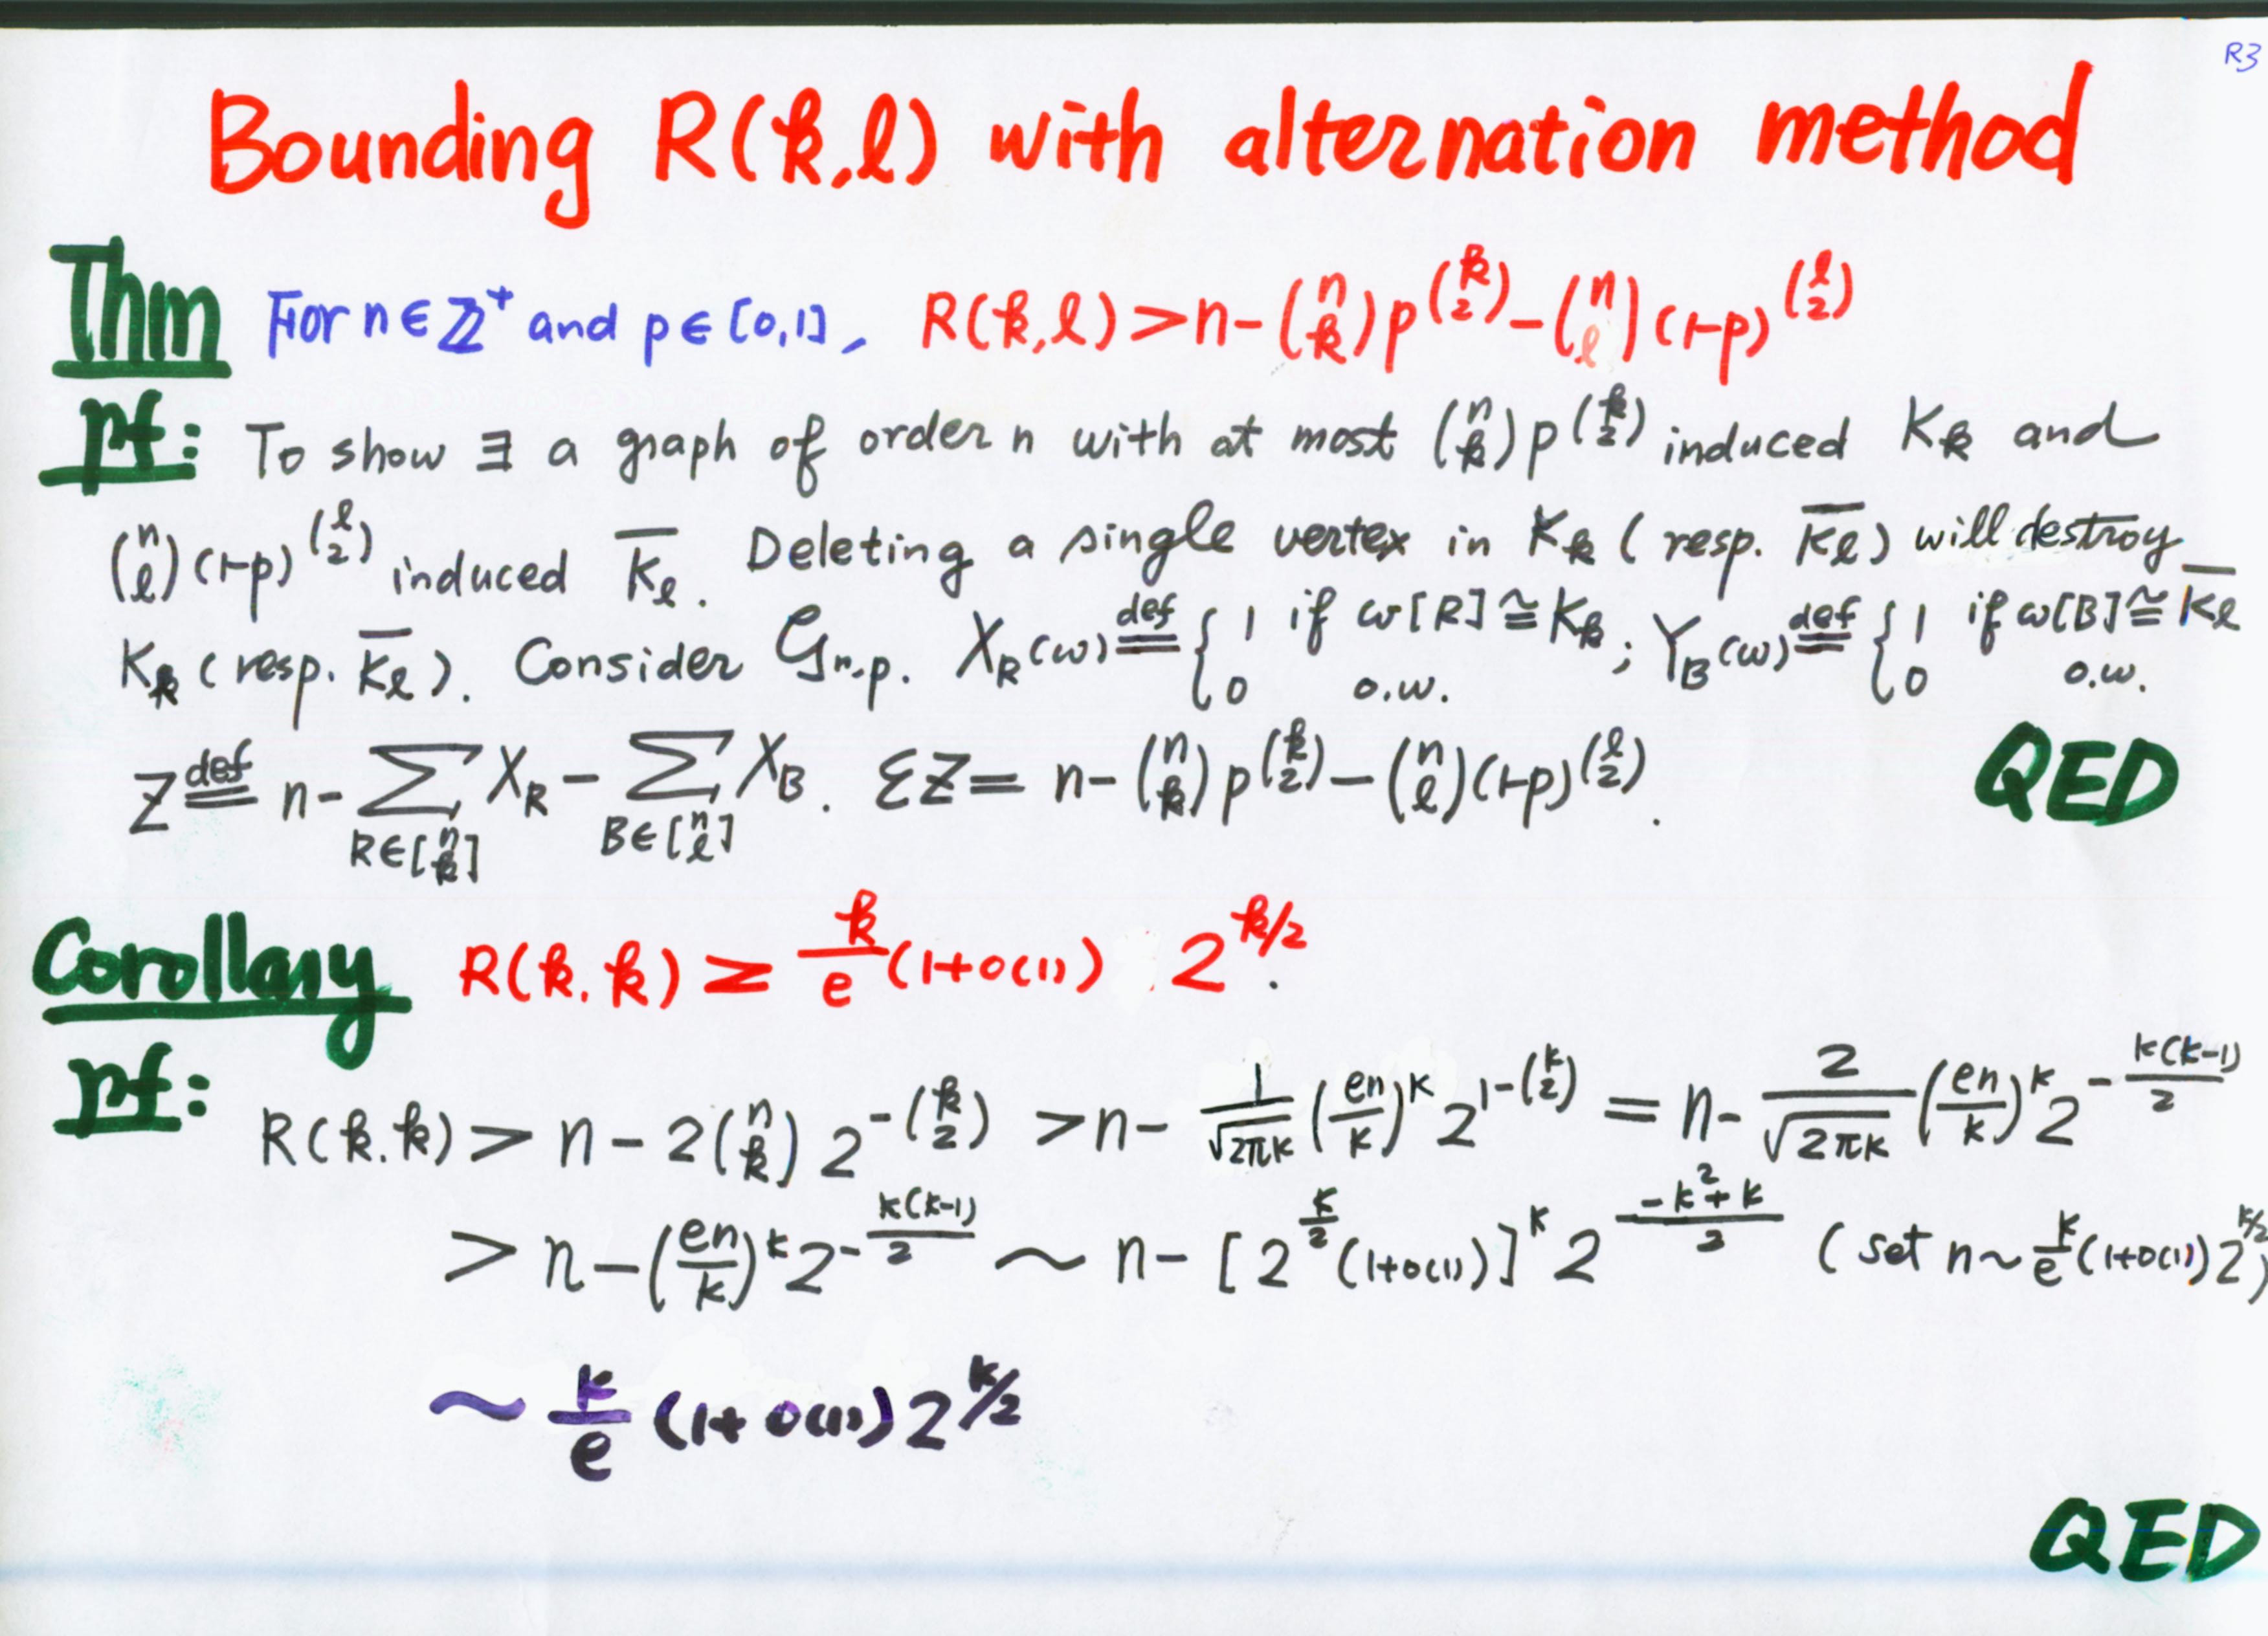 R3
Bounding R(k,l) with alternation method
Thm For n∈ℤ⁺ and p∈[0,1], R(k,l) > n-\binom{n}{k}p^{\binom{k}{2}}-\binom{n}{l}(1-p)^{\binom{l}{2}}
pf: To show ∃ a graph of order n with at most \binom{n}{k}p^{\binom{k}{2}} induced K_k and
\binom{n}{l}(1-p)^{\binom{l}{2}} induced \overline{K_l}. Deleting a single vertex in K_k (resp. \overline{K_l}) will destroy
K_k (resp. \overline{K_l}). Consider G_{n,p}. X_R(ω) \overset{def}{=} { 1 if ω[R]≅K_k 0 o.w. ; Y_B(ω) \overset{def}{=} { 1 if ω[B]≅\overline{K_l} 0 o.w.
Z \overset{def}{=} n-\sum_{R∈[\binom{n}{k}]} X_R - \sum_{B∈[\binom{n}{l}]} X_B. εZ = n-\binom{n}{k}p^{\binom{k}{2}}-\binom{n}{l}(1-p)^{\binom{l}{2}}. QED
Corollary R(k,k) ≥ \frac{k}{e}(1+o(1)) 2^{k/2}.
pf: R(k,k) > n-2\binom{n}{k}2^{-\binom{k}{2}} > n-\frac{1}{\sqrt{2πk}}(\frac{en}{k})^k 2^{1-\binom{k}{2}} = n-\frac{2}{\sqrt{2πk}}(\frac{en}{k})^k 2^{-\frac{k(k-1)}{2}}
> n-(\frac{en}{k})^k 2^{-\frac{k(k-1)}{2}} ~ n-[2^{\frac{k}{2}}(1+o(1))]^k 2^{\frac{-k^2+k}{2}} (set n~\frac{k}{e}(1+o(1))2^{k/2})
~ \frac{k}{e}(1+o(1))2^{k/2}
QED